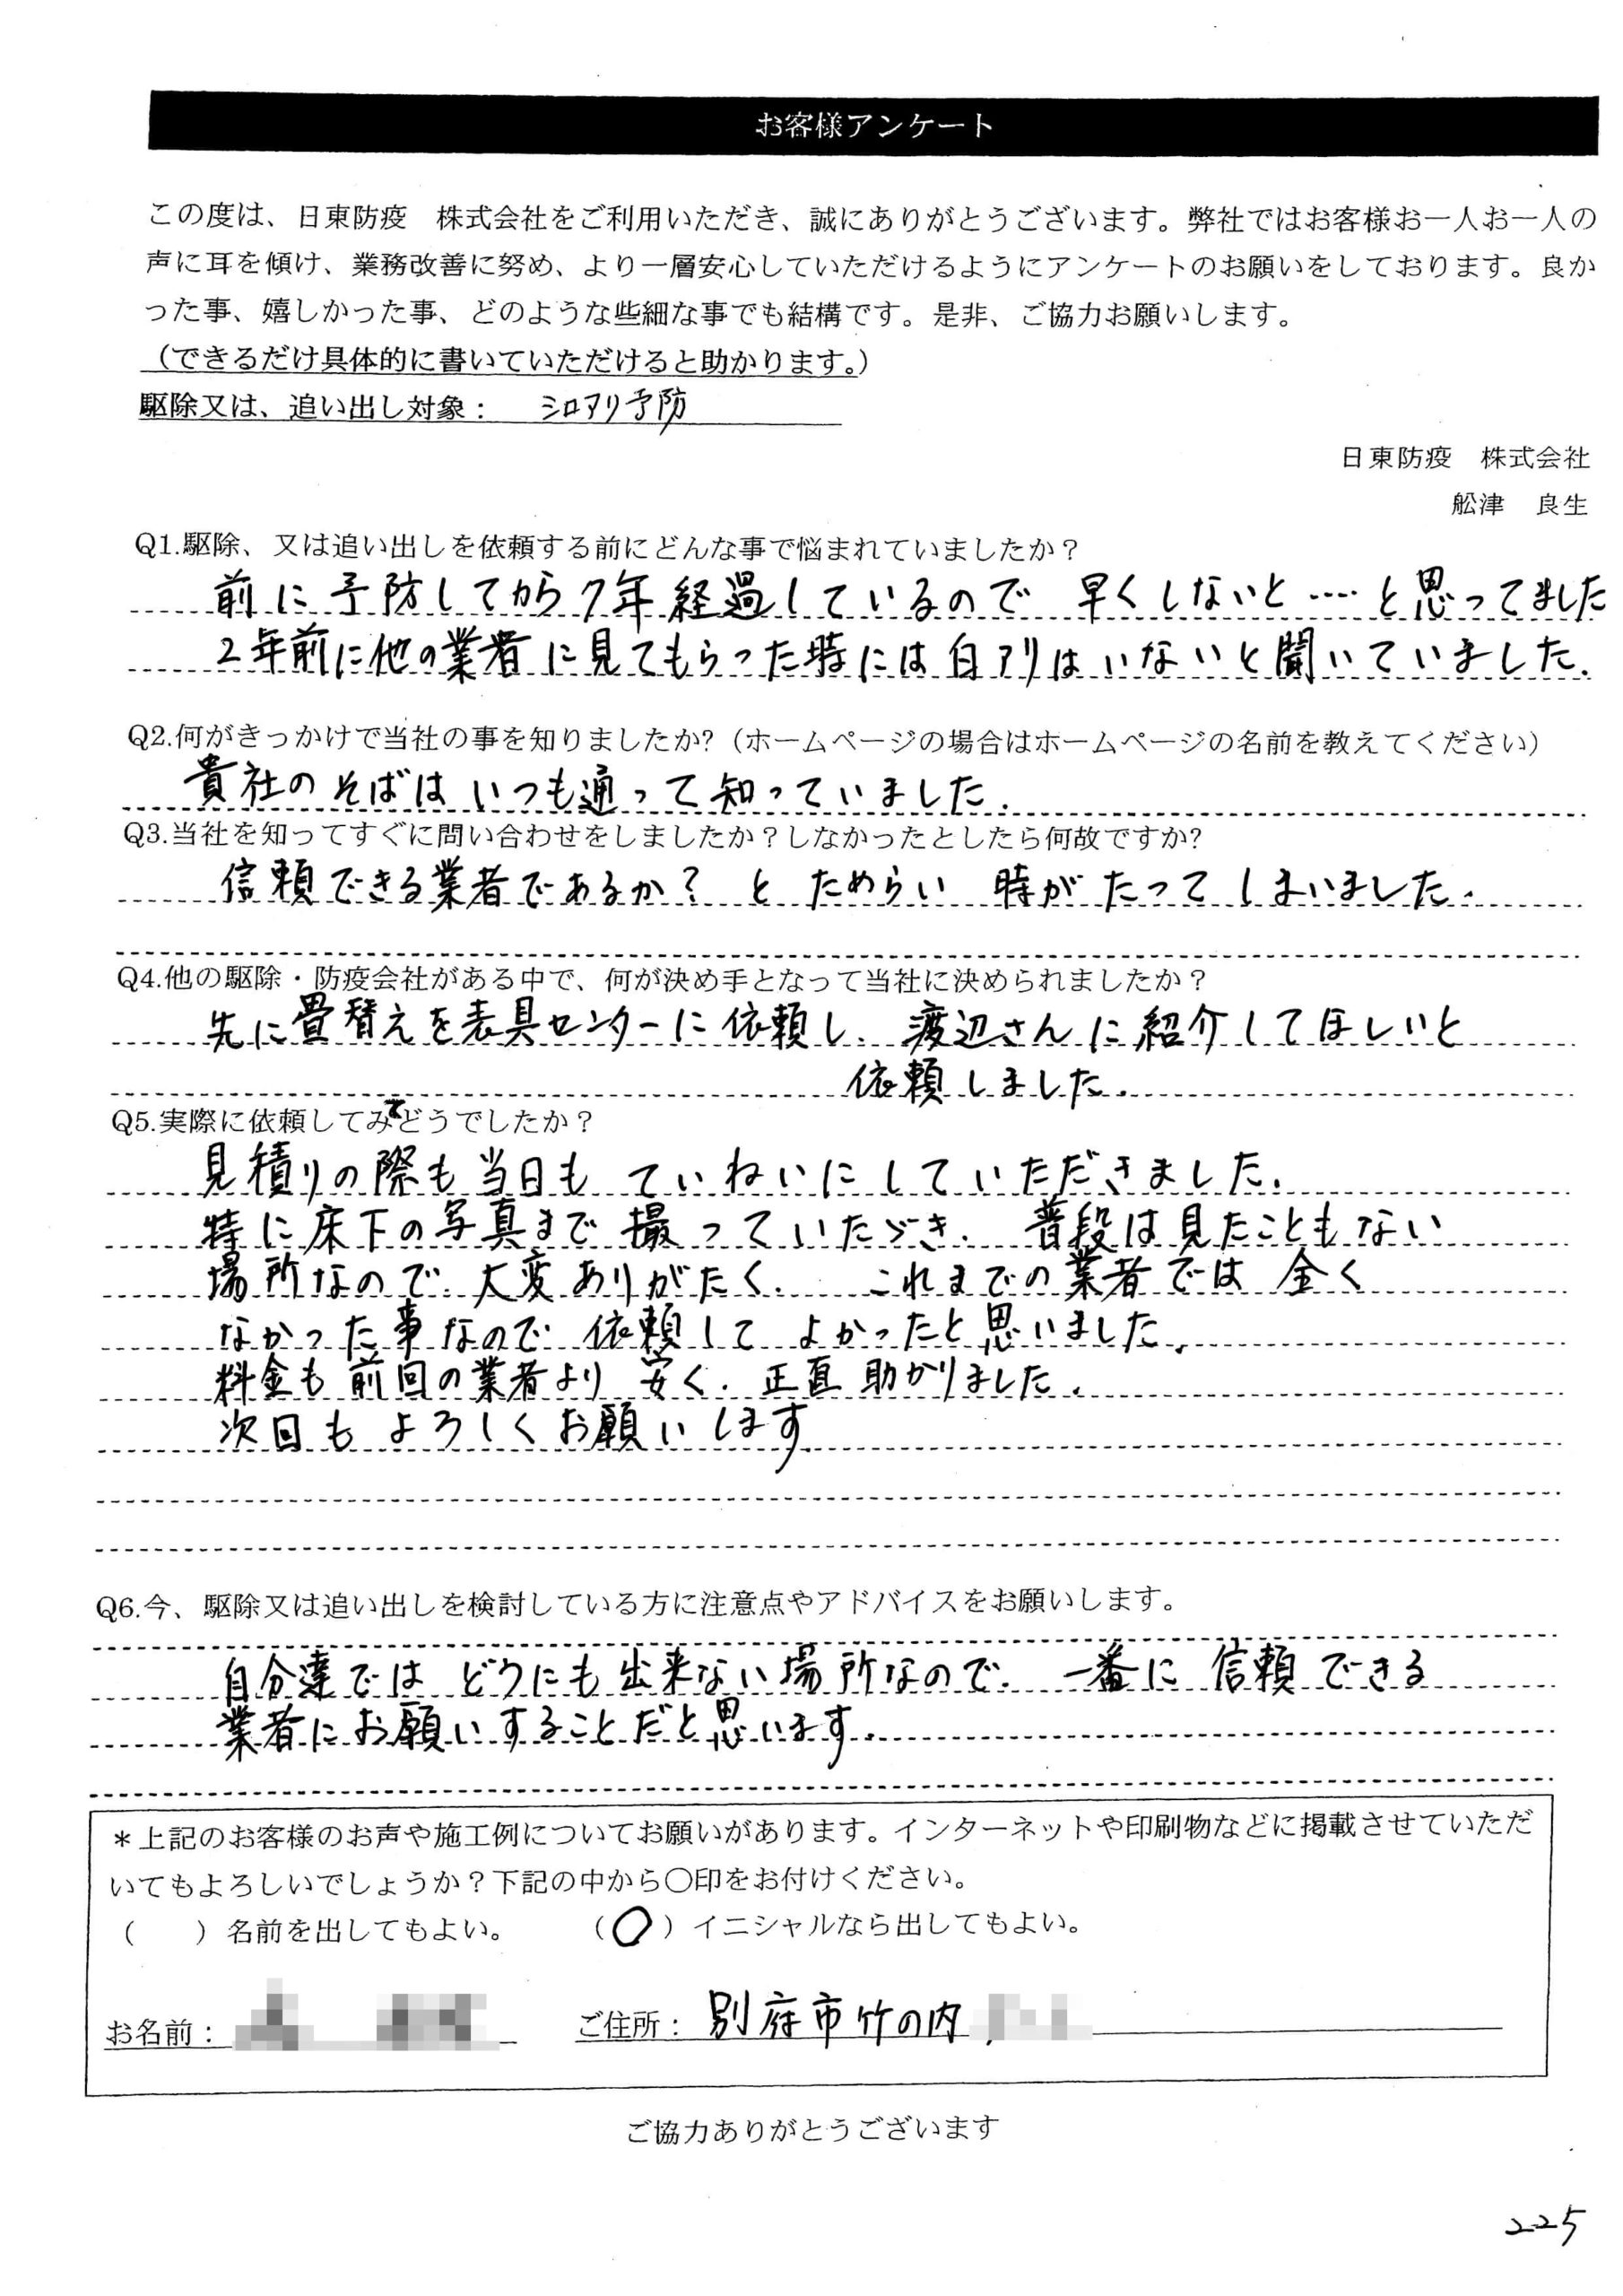 お客様アンケート
この度は、日東防疫　株式会社をご利用いただき、誠にありがとうございます。弊社ではお客様お一人お一人の
声に耳を傾け、業務改善に努め、より一層安心していただけるようにアンケートのお願いをしております。良か
った事、嬉しかった事、どのような些細な事でも結構です。是非、ご協力お願いします。
（できるだけ具体的に書いていただけると助かります。）
駆除又は、追い出し対象：　シロアリ予防
日東防疫　株式会社
舩津　良生
Q1.駆除、又は追い出しを依頼する前にどんな事で悩まれていましたか？
前に予防してから7年経過しているので 早くしないと‥‥と思ってました
2年前に他の業者に見てもらった時には白アリはいないと聞いていました.
Q2.何がきっかけで当社の事を知りましたか?（ホームページの場合はホームページの名前を教えてください）
貴社のそばは いつも通って知っていました.
Q3.当社を知ってすぐに問い合わせをしましたか？しなかったとしたら何故ですか?
信頼できる業者であるか？ と ためらい 時が たって しまいました.
Q4.他の駆除・防疫会社がある中で、何が決め手となって当社に決められましたか？
先に畳替えを表具センターに依頼し. 渡辺さんに紹介してほしいと
依頼しました.
Q5.実際に依頼してみてどうでしたか？
見積りの際も当日も ていねいにしていただきました.
特に床下の写真まで撮っていたゞき. 普段は見たこともない
場所なので. 大変ありがたく. これまでの業者では 全く
なかった事なので 依頼して よかったと思いました.
料金も前回の業者より 安く. 正直助かりました.
次回も よろしくお願いします
Q6.今、駆除又は追い出しを検討している方に注意点やアドバイスをお願いします。
自分達では どうにも出来ない場所なので. 一番に 信頼できる
業者にお願いすることだと思います.
＊上記のお客様のお声や施工例についてお願いがあります。インターネットや印刷物などに掲載させていただ
いてもよろしいでしょうか？下記の中から○印をお付けください。
（　　）名前を出してもよい。　　（○）イニシャルなら出してもよい。
お名前：　　ご住所：別府市竹の内
ご協力ありがとうございます
225